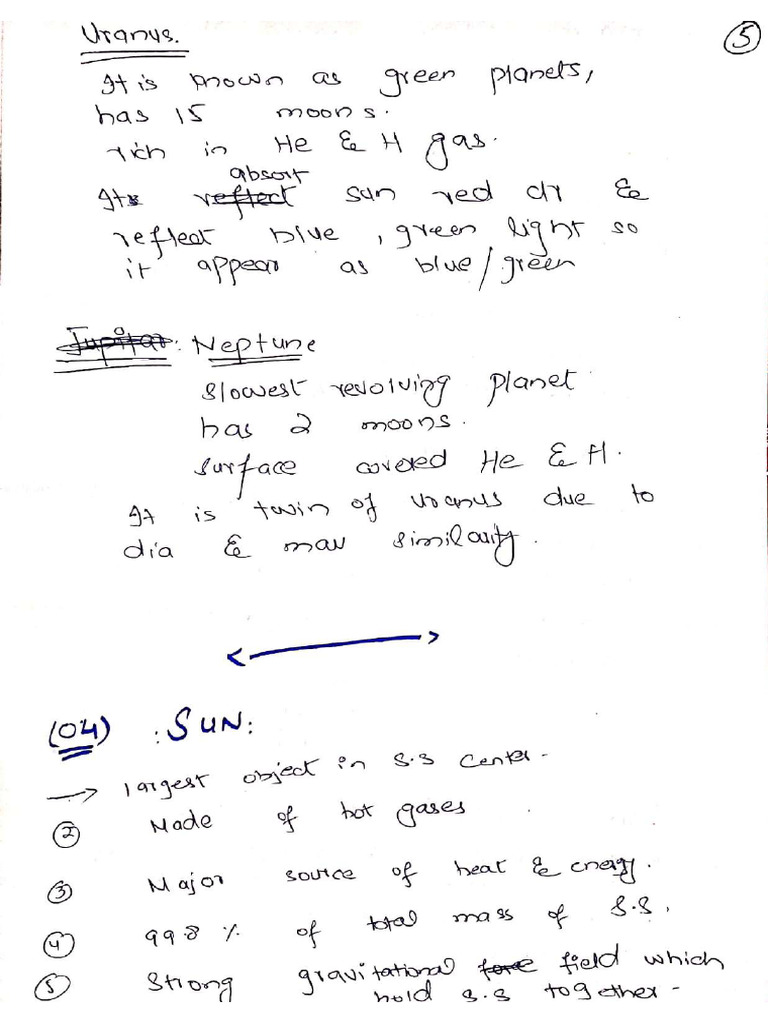 5
Uranus.
It is known as green planets,
has 15 moons.
rich in He & H gas.
absort
It reflect sun red clr &
reflect blue, green light so
it appear as blue/green
Jupitar: Neptune
slowest revolving planet
has 2 moons.
surface covered He & H.
It is twin of uranus due to
dia & mass similarity.
(04) : SUN:
→ largest object in S.S center -
② Made of hot gases
③ Major source of heat & energy.
④ 99.8 % of total mass of S.S.
⑤ Strong gravitational force field which
hold S.S together -